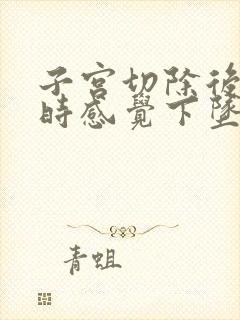 子宮切除後
時感覺下墜
青蛆